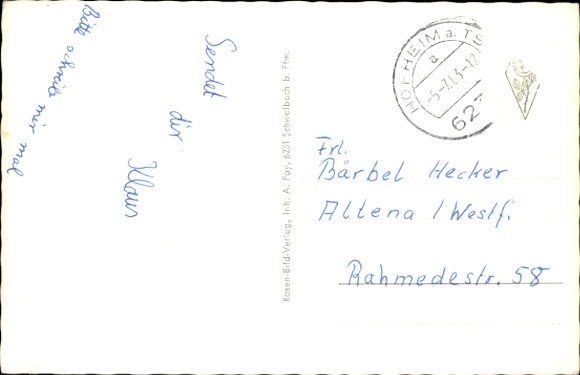 Bitte schreib mir mal
Sendet
dir
Klaus
Rosen-Bild-Verlag, Inh. A. Fay, 6231 Schwalbach b. Ffm.
HOFHEIM a. TS
a
-6-7.63-12
627
Frl.
Bärbel Hecker
Altena / Westf.
Rahmedestr. 58